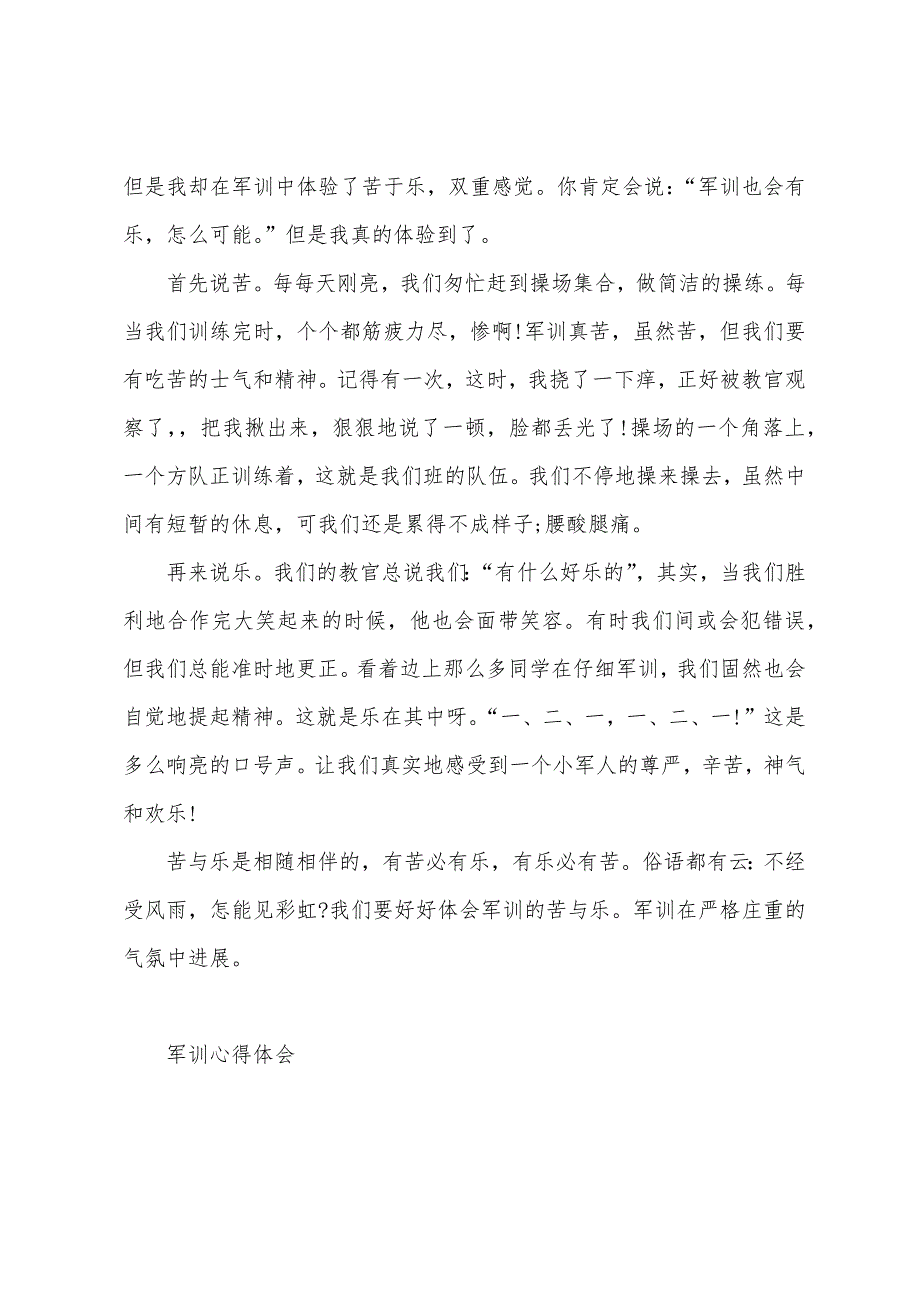 但是我却在军训中体验了苦于乐，双重感觉。你肯定会说：“军训也会有
乐，怎么可能。”但是我真的体验到了。
首先说苦。每每天刚亮，我们匆忙赶到操场集合，做简洁的操练。每
当我们训练完时，个个都筋疲力尽，惨啊!军训真苦，虽然苦，但我们要
有吃苦的士气和精神。记得有一次，这时，我挠了一下痒，正好被教官观
察了，，把我揪出来，狠狠地说了一顿，脸都丢光了!操场的一个角落上，
一个方队正训练着，这就是我们班的队伍。我们不停地操来操去，虽然中
间有短暂的休息，可我们还是累得不成样子;腰酸腿痛。
再来说乐。我们的教官总说我们：“有什么好乐的”，其实，当我们胜
利地合作完大笑起来的时候，他也会面带笑容。有时我们间或会犯错误，
但我们总能准时地更正。看着边上那么多同学在仔细军训，我们固然也会
自觉地提起精神。这就是乐在其中呀。“一、二、一，一、二、一!”这是
多么响亮的口号声。让我们真实地感受到一个小军人的尊严，辛苦，神气
和欢乐!
苦与乐是相随相伴的，有苦必有乐，有乐必有苦。俗语都有云：不经
受风雨，怎能见彩虹?我们要好好体会军训的苦与乐。军训在严格庄重的
气氛中进展。
军训心得体会